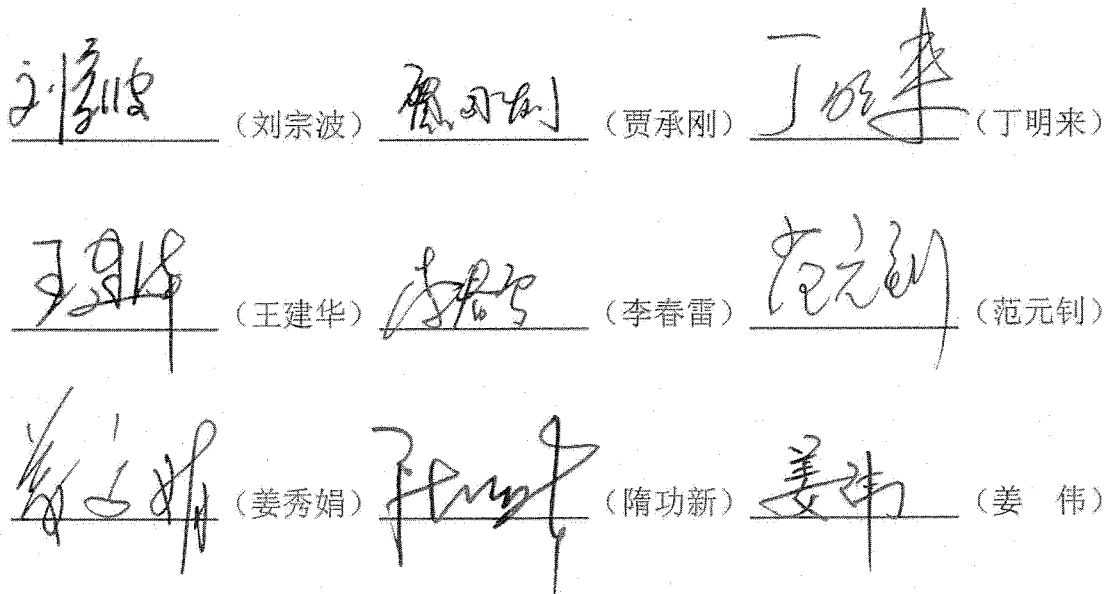 刘宗波（刘宗波）贾承刚（贾承刚）丁明来（丁明来）
王建华（王建华）李春雷（李春雷）范元钊（范元钊）
（姜秀娟）（隋功新）姜伟（姜　伟）